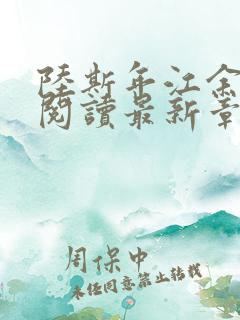 陸斯年江余
閱讀最新章
周保中
未经同意禁止转载